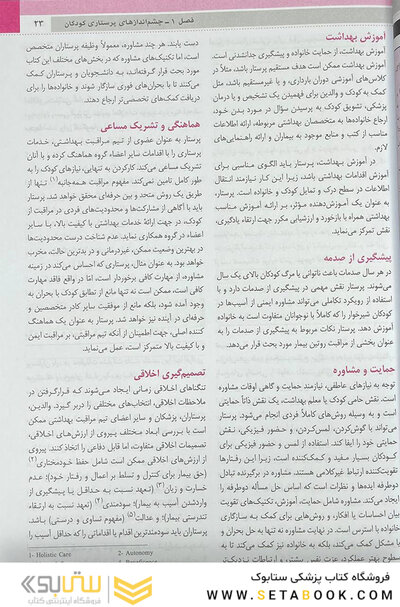 فصل ۱ - چشم‌اندازهای پرستاری کودکان ۲۳
آموزش بهداشت
آموزش بهداشت، از حمایت خانواده و پیشگیری جدانشدنی است.
آموزش بهداشت ممکن است هدف مستقیم پرستار باشد، مثلاً در
کلاس‌های آموزشی دوران بارداری، و یا غیرمستقیم باشد، مثل
کمک به کودک و والدین برای فهمیدن یک تشخیص و یا درمان
پزشکی، تشویق کودک به پرسیدن سؤال در مورد بدن خود،
ارجاع خانواده‌ها به متخصصان بهداشتی مربوطه، ارائه اطلاعات
مناسب از کتب و منابع موجود به بیماران و ارائه راهنمایی‌های
لازم.
در آموزش بهداشت، پرستار باید الگوی مناسبی برای
آموزش اقدامات بهداشتی باشد، زیرا این کار نیازمند انتقال
اطلاعات در سطح درک و تمایل کودک و خانواده است. پرستار،
به عنوان یک آموزش‌دهنده مؤثر، بر ارائه آموزش مناسب
بهداشتی همراه با بازخورد و ارزشیابی مکرر جهت ارتقاء یادگیری،
نقش تمرکز می‌نماید.
پیشگیری از صدمه
در هر سال صدمات باعث ناتوانی یا مرگ کودکان بالای یک سال
می‌شوند. پرستار نقش مهمی در پیشگیری از صدمات دارد و با
استفاده از رویکرد تکاملی می‌تواند مشاوره ایمنی از آسیب‌ها در
کودکان شیرخوار را که کاملاً با نوجوانان متفاوت است به خانواده
آموزش دهد. پرستار نکات مربوط به پیشگیری از صدمات را به
عنوان بخشی از مراقبت روتین بیمار مورد بحث قرار می‌دهد.
حمایت و مشاوره
توجه به نیازهای عاطفی، نیازمند حمایت و گاهی اوقات مشاوره
است. نقش حامی کودک یا معلم بهداشت، یک نقش ذاتاً حمایتی
است و به وسیله روش‌های کاملاً فردی انجام می‌شود. پرستار
می‌تواند با گوش‌کردن، لمس‌کردن، و حضور فیزیکی، نقش
حمایتی خود را ایفا کند. استفاده از لمس و حضور فیزیکی برای
کودکان بسیار مفید و کمک‌کننده است، زیرا این رفتارها
تقویت‌کننده ارتباط غیرکلامی هستند. مشاوره در برگیرنده تبادل
دوطرفه ایده‌ها و نظرات است که اساس حل مسأله دوطرفه را
ایجاد می‌کند. مشاوره شامل حمایت، آموزش، تکنیک‌های تقویت
بیان احساسات یا افکار، و روش‌هایی برای کمک به سازگاری
خانواده با استرس است. در نهایت مشاوره نه تنها به حل بحران و
یا مشکل کمک می‌کند، بلکه به خانواده نیز کمک می‌کند تا به
دست یابند. هر چند مشاوره، معمولاً وظیفه پرستاران متخصص
است، اما تکنیک‌های مشاوره که در بخش‌های مختلف این کتاب
مورد بحث قرار گرفته‌اند، به دانشجویان و پرستاران کمک
می‌کنند تا با بحران‌های فوری سازگار شوند و خانواده‌ها را برای
دریافت کمک‌های تخصصی‌تر ارجاع دهند.
هماهنگی و تشریک مساعی
پرستار به عنوان عضوی از تیم مراقبت بهداشتی، خدمات
پرستاری را با اقدامات سایر اعضاء گروه هماهنگ کرده و با آنان
تشریک مساعی می‌کند. کارکردن به تنهایی، نیازهای کودک را به
طور کامل تامین نمی‌کند. مفهوم مراقبت همه‌جانبه(۱) تنها از
طریق یک روش متحد و بین حرفه‌ای محقق خواهد شد. پرستار
باید با آگاهی از مشارکت‌ها و محدودیت‌های فردی در مراقبت از
کودک، در جهت ارائه خدمات بهداشتی با کیفیت بالا، با سایر
اعضاء در گروه همکاری نماید. عدم شناخت درست محدودیت‌ها
در بهترین وضعیت ممکن، غیردرمانی و در بدترین حالت، مخرب
خواهد بود. به عنوان مثال، پرستاری که احساس می‌کند در زمینه
مشاوره، از مهارت کافی برخوردار است، اما در واقع فاقد مهارت
کافی است، ممکن است نه تنها مانع از تطابق کودک با بحران به
وجود آمده شود، بلکه مانع از موفقیت سایر کادر متخصصین و
حرفه‌ای در آینده نیز خواهد شد. پرستار به عنوان یک هماهنگ
کننده اصلی، جهت اطمینان از آنکه تیم مراقبتی، بر مراقبت ایمن
و با کیفیت بالا متمرکز است، عمل می‌نماید.
تصمیم‌گیری اخلاقی
تنگناهای اخلاقی زمانی ایجاد می‌شوند که قرارگرفتن در
ملاحظات اخلاقی، انتخاب‌های مختلفی را دربر گیرد. والدین،
پرستاران، پزشکان و سایر اعضای تیم مراقبت بهداشتی ممکن
است با بررسی ابعاد مختلف پیروی از ارزش‌های اخلاقی،
تصمیمات اخلاقی متفاوت، اما قابل دفاعی را اتخاذ کنند. پیروی
از ارزش‌های اخلاقی ممکن است شامل حفظ خودمختاری(۲)
(حق بیمار برای کنترل و تسلط بر اعمال و رفتار خود)؛ عدم
خسارت و زیان(۳) (تعهد نسبت به حداقل یا پیشگیری از
واردشدن آسیب به بیمار)؛ سودمندی(۴) (تعهد نسبت به ارتقاء
تندرستی بیمار)؛ و عدالت(۵) (مفهوم تساوی و درستی) باشد.
پرستاران باید سودمندترین اقدام یا اقداماتی را که حداقل آسیب را
1- Holistic Care 2- Autonomy
ستابوک
فروشگاه اینترنتی کتاب
فروشگاه کتاب پزشکی ستابوک
WWW.SETABOOK.COM